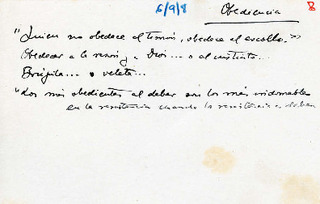 6/9/8 Obediencia 8
"Quien no obedece al timón, obedece al escollo.»
Obedecer a la razón y Dios... o al instinto...
Brújula... o veleta...
"Los más obedientes al deber son los más indomables
en la resistencia cuando la resistencia es deber